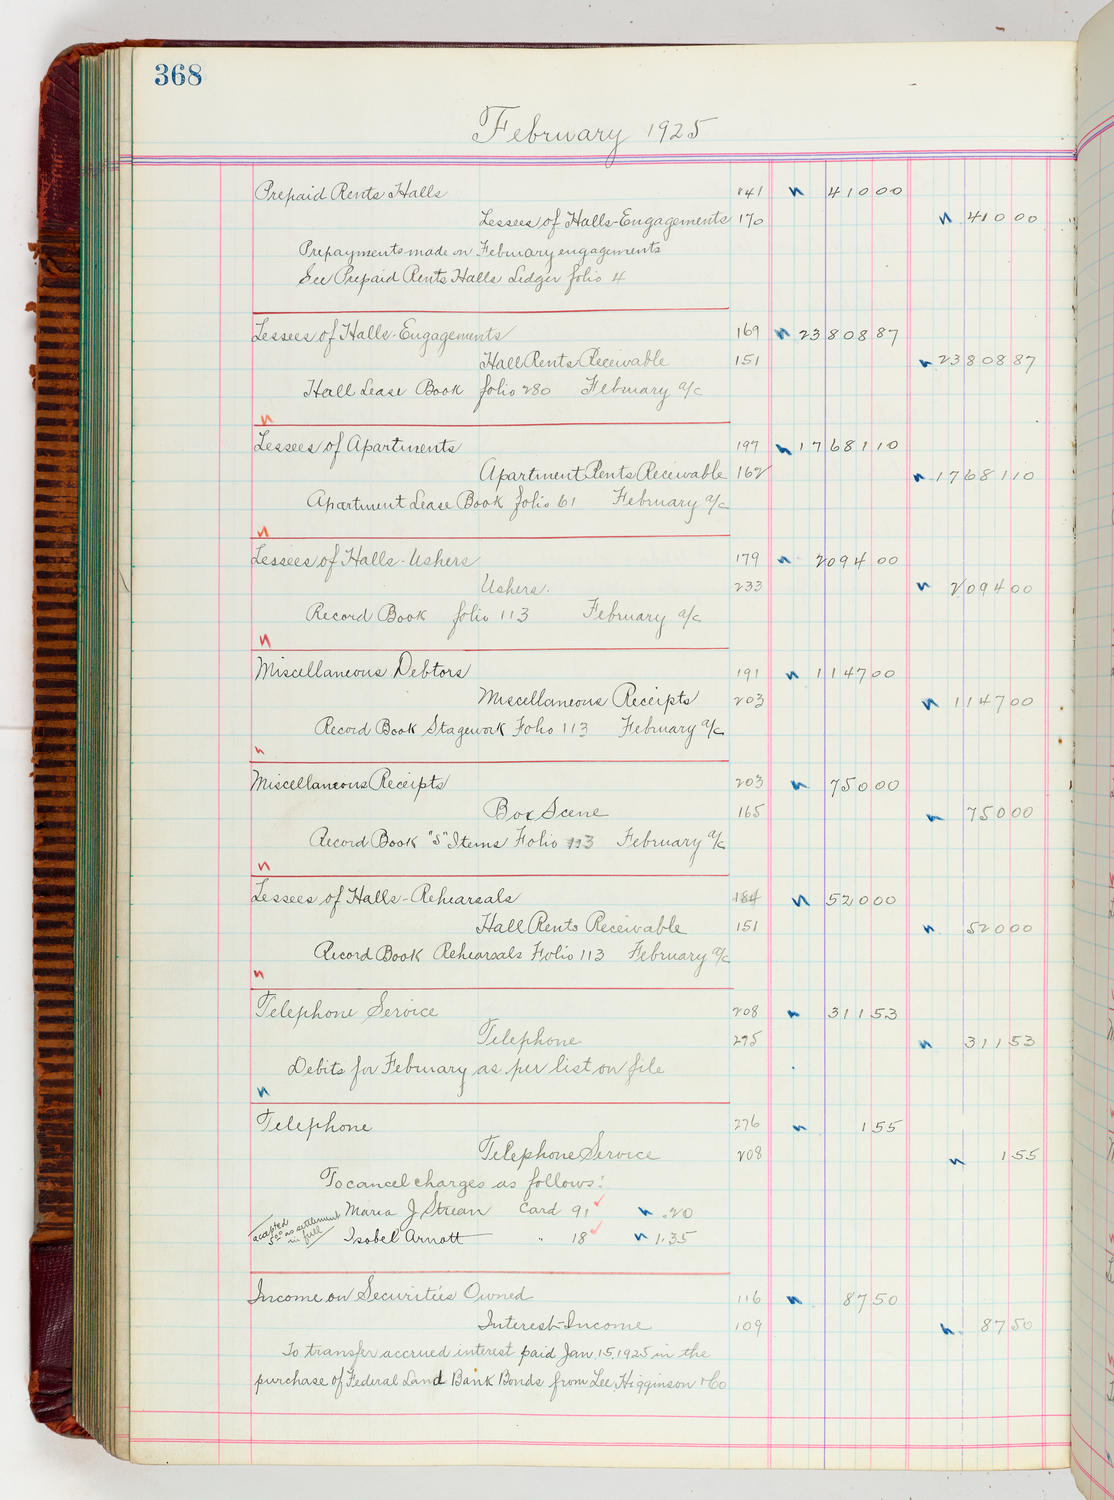 368
February 1925
Prepaid Rents Halls 141 410 00
Lessees of Halls-Engagements 170 410 00
Prepayments made on February engagements
See Prepaid Rents Halls Ledger folio 4
Lessees of Halls-Engagements 169 23808 87
Hall Rents Receivable 151 23808 87
Hall Lease Book folio 280 February a/c
Lessees of Apartments 197 17681 10
Apartment Rents Receivable 162 17681 10
Apartment Lease Book folio 61 February a/c
Lessees of Halls-Ushers 179 2094 00
Ushers. 233 2094 00
Record Book folio 113 February a/c
Miscellaneous Debtors 191 1147 00
Miscellaneous Receipts 203 1147 00
Record Book Stagework Folio 113 February a/c
Miscellaneous Receipts 203 750 00
Box Scene 165 750 00
Record Book "S" Items Folio 113 February a/c
Lessees of Halls-Rehearsals 184 520 00
Hall Rents Receivable 151 520 00
Record Book Rehearsals Folio 113 February a/c
Telephone Service 208 311 53
Telephone 295 311 53
Debits for February as per list on file
Telephone 276 1 55
Telephone Service 208 1 55
To cancel charges as follows:
Maria J Struan Card 91 .20
accepted 5.00 as settlement in full
Isobel Arnott " 18 1.35
Income on Securities Owned 116 87 50
Interest-Income 109 87 50
To transfer accrued interest paid Jan. 15, 1925 in the
purchase of Federal Land Bank Bonds from Lee, Higginson & Co